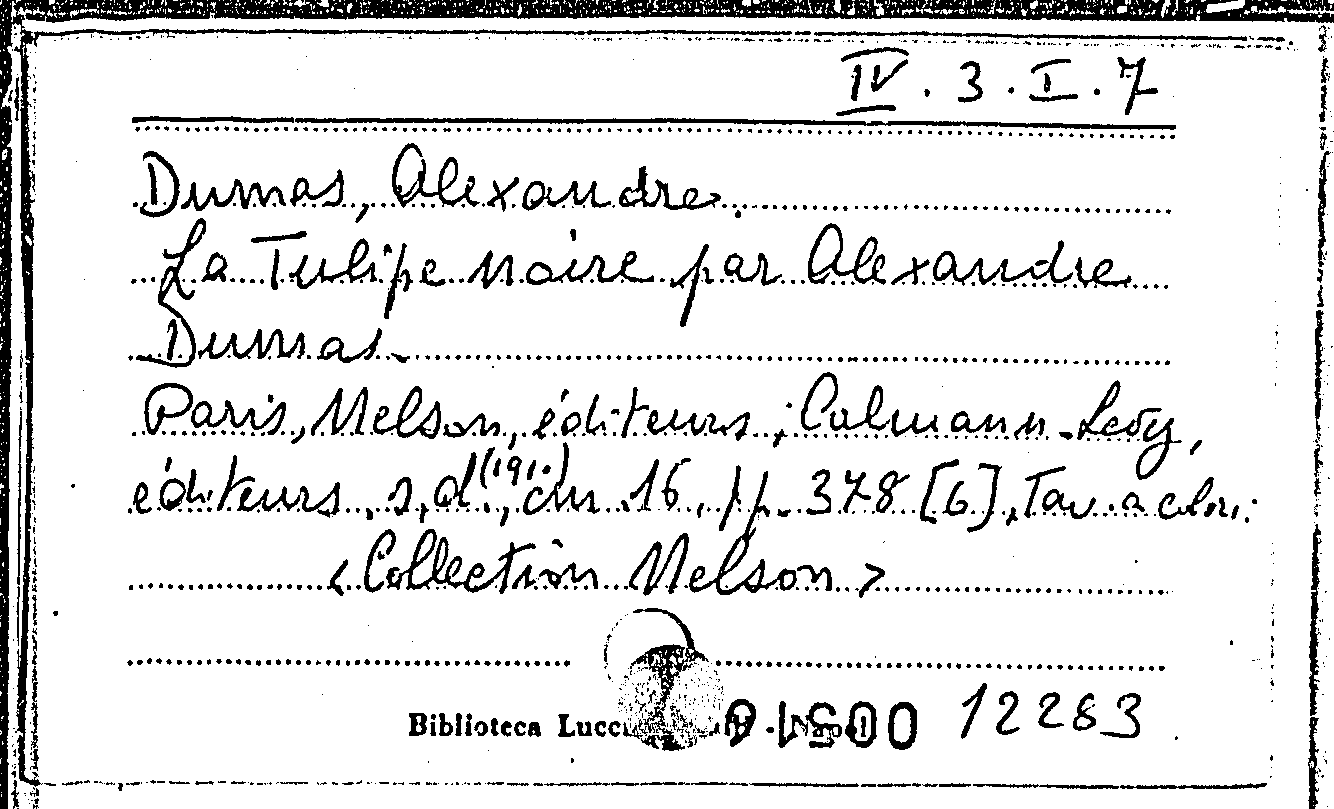 IV.3.I.7
Dumas, Alexandre.
La Tulipe noire par Alexandre
Dumas.
Paris, Nelson, éditeurs; Calmann-Levy,
éditeurs, s.d. (191.), cm 16, pp. 378 [6], Tav. a colori.
<Collection Nelson>
12283
Biblioteca Napoli